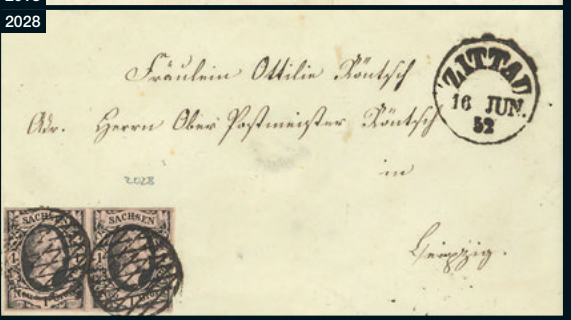 2028
Fräulein Ottilie Köntsch
Adr. Herrn Ober Postmeister Köntsch
in
Leipzig.
ZITTAU
16 JUN.
52
2028
SACHSEN
SACHSEN